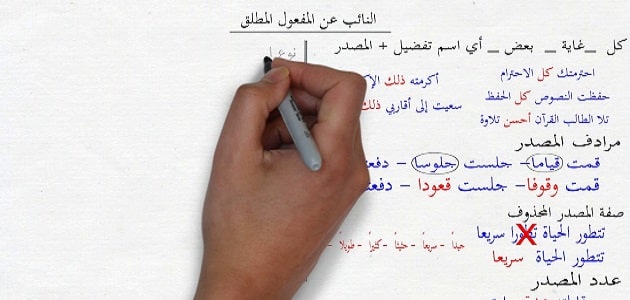 النائب عن المفعول المطلق
كل _ غاية _ بعض _ أي اسم تفضيل + المصدر
احترمتك كل الاحترام
حفظت النصوص كل الحفظ
تلا الطالب القرآن أحسن تلاوة
مرادف المصدر
قمت قياما – جلست جلوسا –
قمت وقوفا – جلست قعودا –
صفة المصدر المحذوف
تتطور الحياة تطورا سريعا
تتطور الحياة سريعا
عدد المصدر
أكرمته ذلك
سعيت إلى أقاربي ذلك
جيدًا – سريعًا – حثيثًا – كثيرًا – طويلًا –